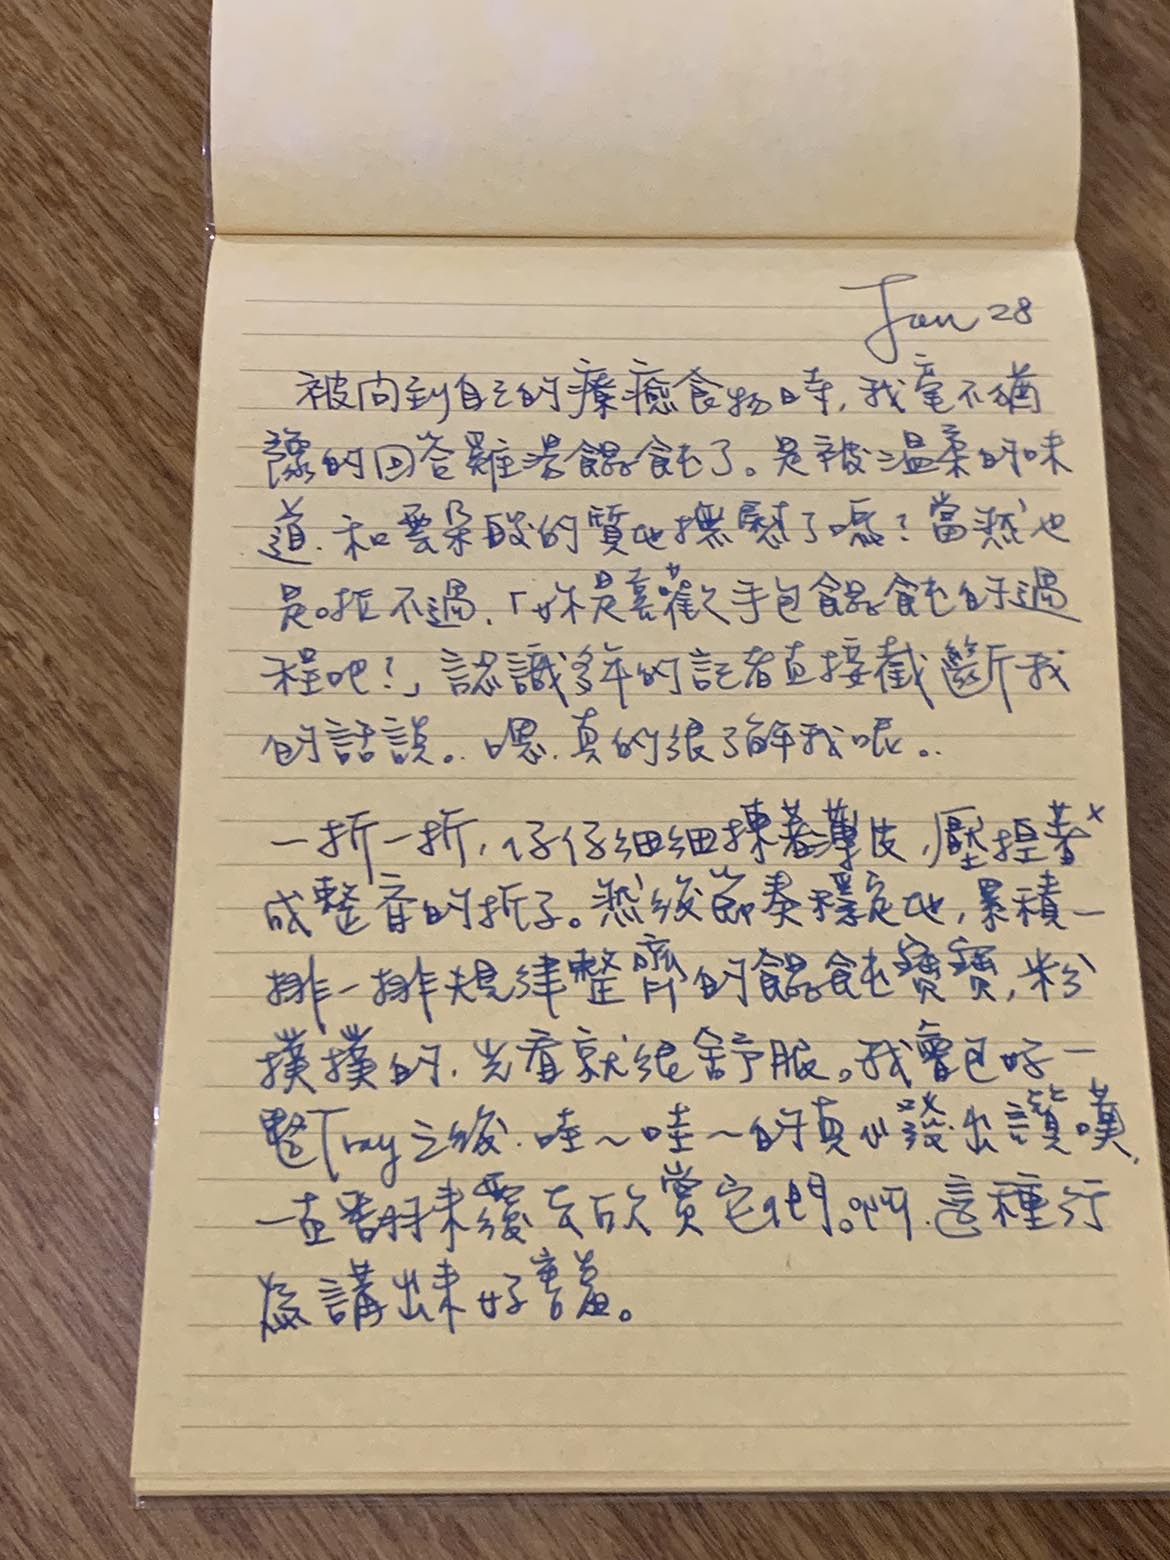 Jan 28
被問到自己的療癒食物時,我毫不猶
豫的回答雞湯餛飩了。是被溫柔的味
道、和雲朵般的質地撫慰了嗎?當然也
是啦不過,「妳是喜歡手包餛飩的過
程吧?」認識多年的記者直接截斷我
的話說。嗯、真的很了解我呢。
一折一折,仔仔細細揀著薄皮,壓捏著
成整齊的折子。然後節奏穩定地,累積一
排一排規律整齊的餛飩寶寶,粉
撲撲的、光看就很舒服。我曾包好一
整Tray之後、哇~哇~的真心發出讚嘆、
一直翻來覆去欣賞它們。啊、這種行
為講出來好害羞。